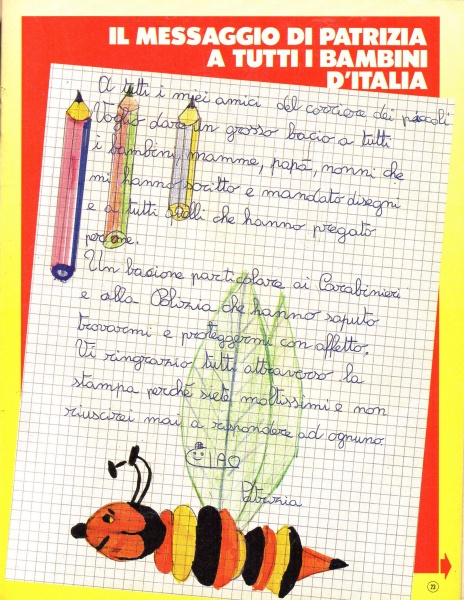 IL MESSAGGIO DI PATRIZIA
A TUTTI I BAMBINI
D'ITALIA
A tutti i miei amici del corriere dei piccoli
Voglio dare un grosso bacio a tutti
i bambini, mamme, papà, nonni che
mi hanno scritto e mandato disegni
e a tutti quelli che hanno pregato
per me.
Un bacione particolare ai Carabinieri
e alla Polizia che hanno saputo
trovarmi e proteggermi con affetto.
Vi ringrazio tutti attraverso la
stampa perché siete moltissimi e non
riuscirei mai a rispondere ad ognuno
CIAO
Patrizia
73